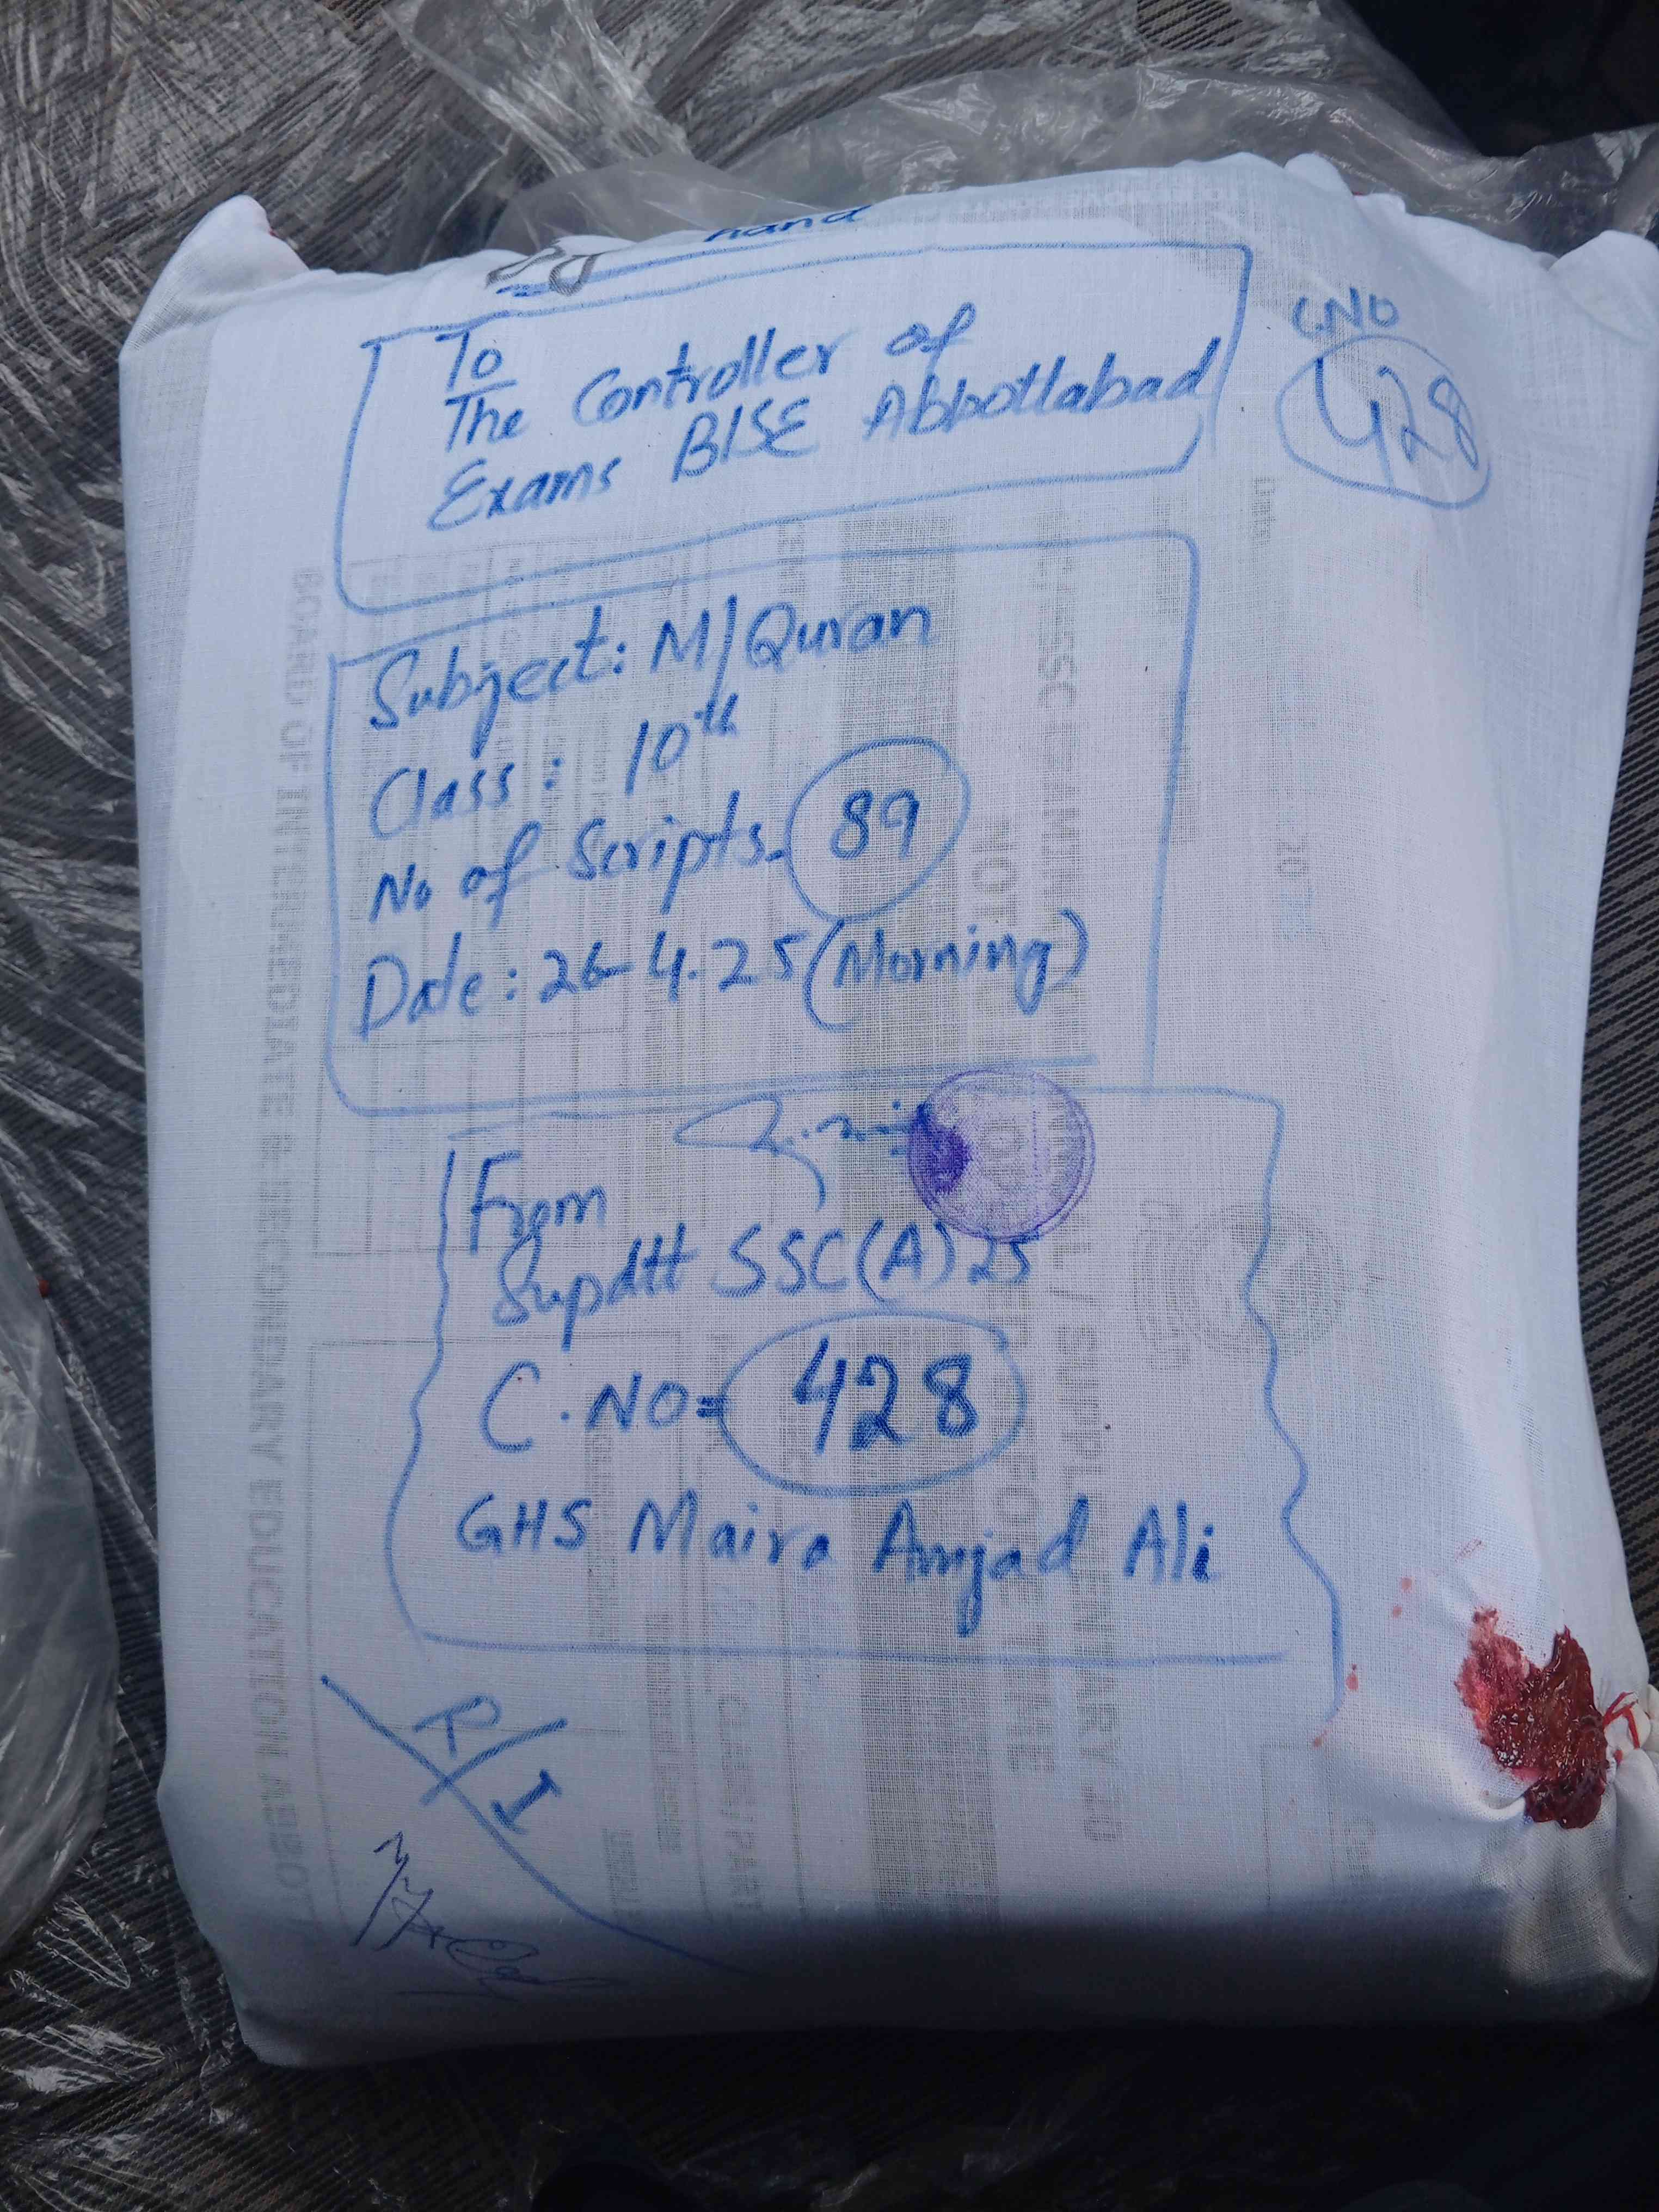 hand
To
The Controller of
Exams BISE Abbottabad
C.NO
428
Subject: M/Quran
Class: 10th
No of Scripts. 89
Date: 26-4.25 (Morning)
From
Supdtt SSC(A) 25
C.NO= 428
GHS Maira Amjad Ali
P/I
BOARD OF INTERMEDIATE & SECONDARY EDUCATION ABBOTT